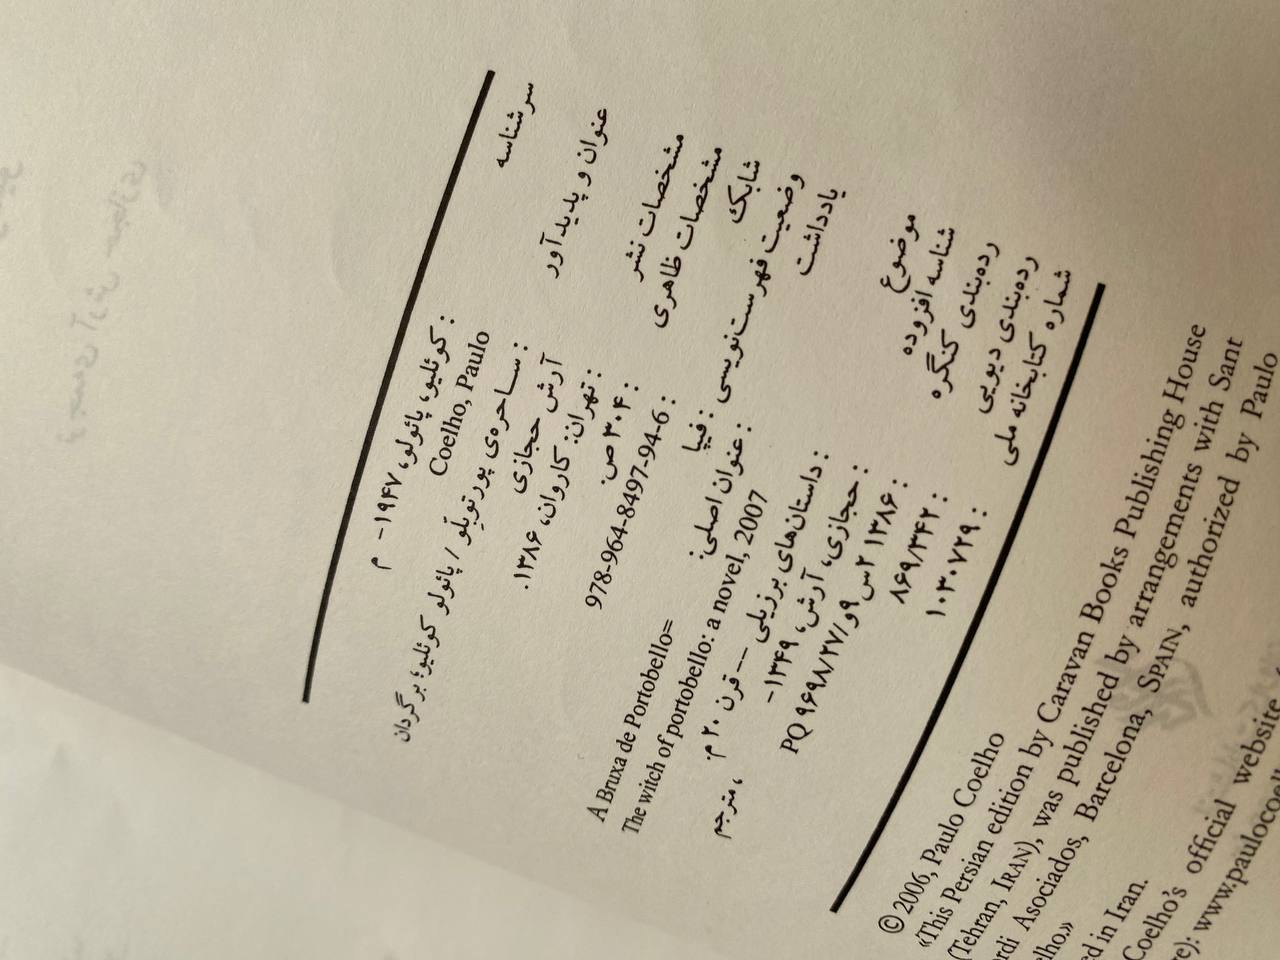 سرشناسه : کوئلیو، پائولو، ۱۹۴۷- م
Coelho, Paulo
عنوان و پدیدآور : ساحره‌ی پورتوبِلّو / پائولو کوئلیو؛ برگردان
آرش حجازی
مشخصات نشر : تهران: کاروان، ۱۳۸۶.
مشخصات ظاهری : ۳۰۴ ص.
شابک : 978-964-8497-94-6
وضعیت فهرست‌نویسی : فیپا
یادداشت : عنوان اصلی:
A Bruxa de Portobello=
The witch of portobello: a novel, 2007
موضوع : داستان‌های برزیلی -- قرن ۲۰ م.
شناسه افزوده : حجازی، آرش، ۱۳۴۹- ، مترجم
رده‌بندی کنگره : ۱۳۸۶ ۲س۹و/PQ ۹۶۹۸/۲۷
رده‌بندی دیویی : ۸۶۹/۳۴۲
شماره کتابخانه ملی : ۱۰۳۰۷۲۹
© 2006, Paulo Coelho
«This Persian edition by Caravan Books Publishing House
(Tehran, IRAN), was published by arrangements with Sant
Asociados, Barcelona, SPAIN, authorized by Paulo
in Iran.
Coelho's official website
www.paulocoel